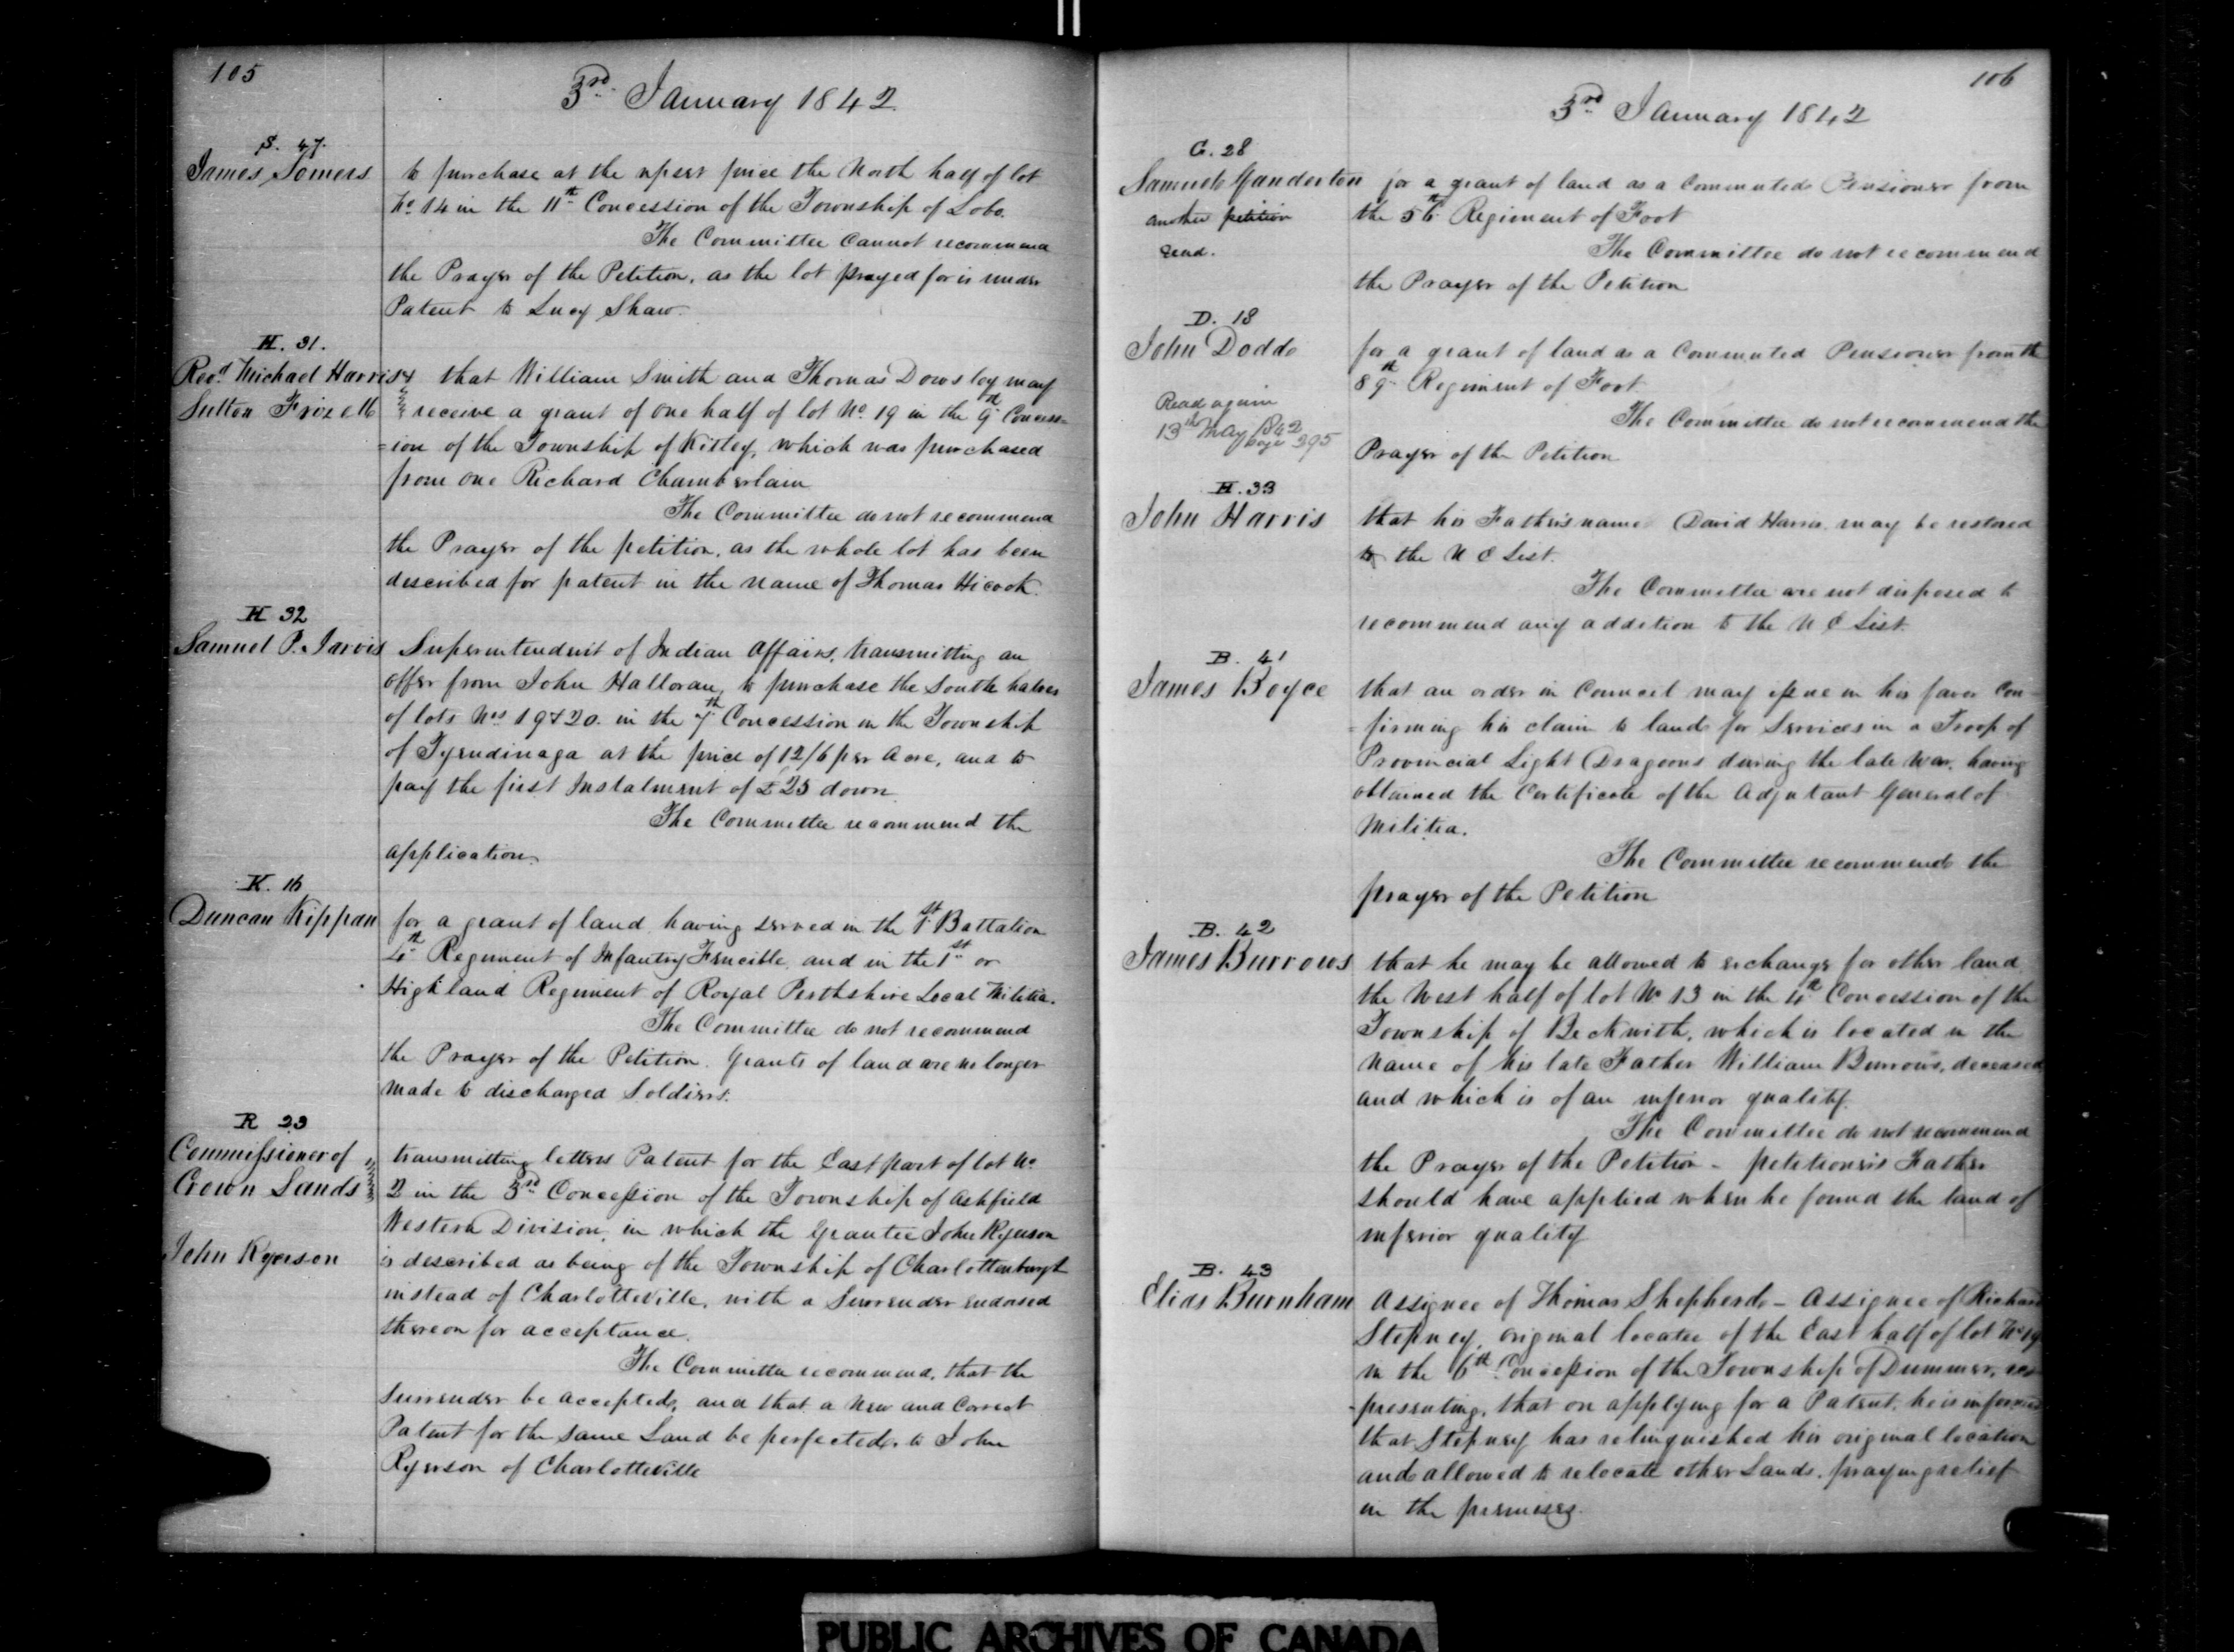 105
3rd January 1842
S. 47.
James Somers
to purchase at the upset price the North half of lot
No 14 in the 11th Concession of the Township of Lobo.
The Committee Cannot recommend
the Prayer of the Petition, as the lot prayed for is under
Patent to Lucy Shaw.
H. 31.
Revd Michael Harris &
Sutton Frizell
that William Smith and Thomas Dowsley may
receive a grant of one half of lot No 19 in the 9th Concess=
=ion of the Township of Kitley, which was purchased
from one Richard Chamberlain
The Committee do not recommend
the Prayer of the petition, as the whole lot has been
described for patent in the name of Thomas Hicock.
H 32
Samuel P. Jarvis
Superintendent of Indian Affairs, transmitting an
offer from John Halloran, to purchase the South halves
of lots Nos 19 & 20. in the 7th Concession in the Township
of Tyendinaga at the price of 12/6 per Acre, and to
pay the first Instalment of £25 down
The Committee recommend the
application.
K. 16
Duncan Kippan
for a grant of land having served in the 1st Battalion
4th Regiment of Infantry Fencible, and in the 1st or
Highland Regiment of Royal Perthshire Local Militia.
The Committee do not recommend
the Prayer of the Petition. Grants of land are no longer
made to discharged Soldiers.
R 23
Commissioner of
Crown Lands
John Ryerson
transmitting letters Patent for the East part of lot No
2 in the 3rd Concession of the Township of Ashfield
Western Division, in which the Grantee John Ryerson
is described as being of the Township of Charlottenburgh
instead of Charlotteville, with a Surrender endorsed
thereon for acceptance.
The Committee recommend, that the
Surrender be accepted, and that a New and Correct
Patent for the same Land be perfected to John
Ryerson of Charlotteville
106
3rd January 1842
G. 28
Samuel Ganderton
another petition
read.
for a grant of land as a Commuted Pensioner from
the 5th Regiment of Foot
The Committee do not recommend
the Prayer of the Petition
D. 18
John Dodd
Read again
13th May 1842
page 395
for a grant of land as a Commuted Pensioner from the
89th Regiment of Foot
The Committee do not recommend the
Prayer of the Petition
H. 33
John Harris
that his Father's name David Harris may be restored
to the U E List.
The Committee are not disposed to
recommend any addition to the U E List.
B. 41
James Boyce
that an order in Council may issue in his favor Con=
=firming his claim to land for Services in a Troop of
Provincial Light Dragoons during the late War, having
obtained the Certificate of the Adjutant General of
Militia.
The Committee recommend the
prayer of the Petition
B. 42
James Burrows
that he may be allowed to exchange for other land
the West half of lot No 13 in the 4th Concession of the
Township of Beckwith, which is located in the
name of his late Father William Burrows, deceased
and which is of an inferior quality.
The Committee do not recommend
the Prayer of the Petition - petitioner's Father
should have applied when he found the land of
inferior quality
B. 43
Elias Burnham
Assignee of Thomas Shepherd - Assignee of Richard
Stepney, original locatee of the East half of lot No 19
in the 6th Concession of the Township of Dummer, re=
=presenting, that on applying for a Patent, he is informed
that Stepney has relinquished his original location
and allowed to relocate other Lands, praying relief
in the premises.
PUBLIC ARCHIVES OF CANADA